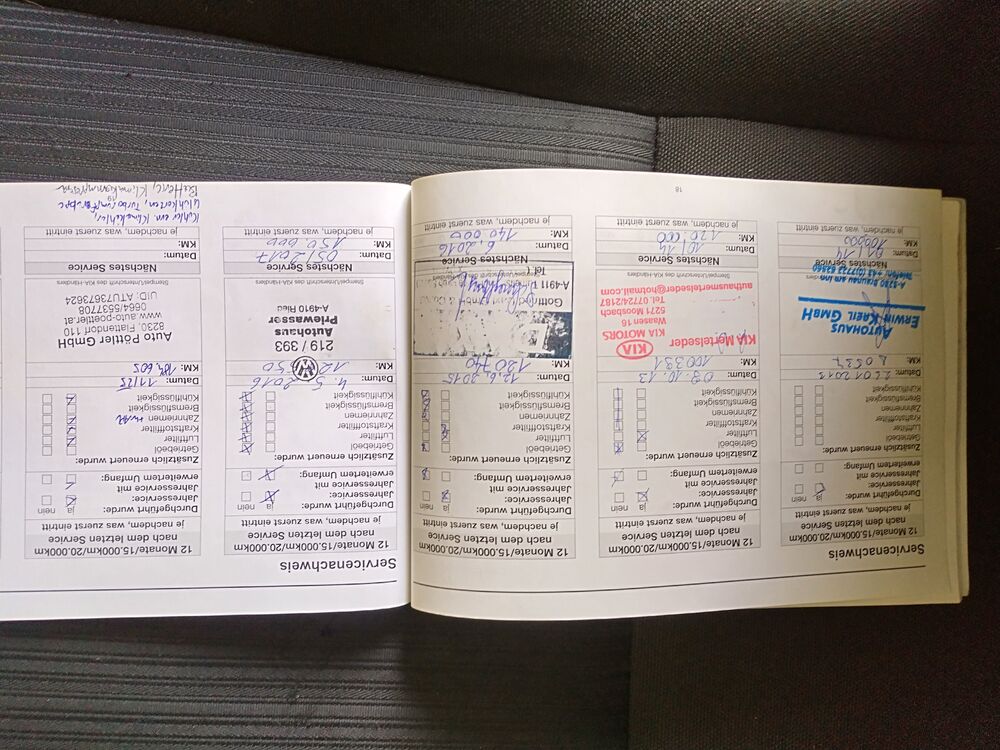 Servicenachweis
12 Monate/15.000km/20.000km
nach dem letzten Service
je nachdem, was zuerst eintritt
Durchgeführt wurde:
ja nein
Jahresservice:
Jahresservice mit
erweitertem Umfang:
Zusätzlich erneuert wurde:
Getriebeöl
Luftfilter
Kraftstofffilter
Zahnriemen
Bremsflüssigkeit
Kühlflüssigkeit
Datum:
KM:
AUTOHAUS
ERWIN KREIL GMBH
A-5280 Braunau am Inn
Nächstes Service
Datum:
KM: 100000
je nachdem, was zuerst eintritt
12 Monate/15.000km/20.000km
nach dem letzten Service
je nachdem, was zuerst eintritt
Durchgeführt wurde:
ja nein
Jahresservice:
Jahresservice mit
erweitertem Umfang:
Zusätzlich erneuert wurde:
Getriebeöl
Luftfilter
Kraftstofffilter
Zahnriemen
Bremsflüssigkeit
Kühlflüssigkeit
Datum: 09.10.13
KM: 100331
KIA Mertelseder
KIA MOTORS
Waasen 16
5271 Moosbach
Tel. 07724/2187
authausmertelseder@hotmail.com
Stempel/Unterschrift des KIA-Händlers
Nächstes Service
Datum: 10/14
KM: 120 000
je nachdem, was zuerst eintritt
12 Monate/15.000km/20.000km
nach dem letzten Service
je nachdem, was zuerst eintritt
Durchgeführt wurde:
ja nein
Jahresservice:
Jahresservice mit
erweitertem Umfang:
Zusätzlich erneuert wurde:
Getriebeöl
Luftfilter
Kraftstofffilter
Zahnriemen
Bremsflüssigkeit
Kühlflüssigkeit
Datum: 12.6.2015
KM: 120 740
A-4911
Tel.
Nächstes Service
Datum: 6.2016
KM: 140 000
je nachdem, was zuerst eintritt
18
Servicenachweis
12 Monate/15.000km/20.000km
nach dem letzten Service
je nachdem, was zuerst eintritt
Durchgeführt wurde:
ja nein
Jahresservice:
Jahresservice mit
erweitertem Umfang:
Zusätzlich erneuert wurde:
Getriebeöl
Luftfilter
Kraftstofffilter
Zahnriemen
Bremsflüssigkeit
Kühlflüssigkeit
Datum: 4. 5. 2016
KM:
219 / 393
Autohaus
Priewasser
A-4910 Ried
Stempel/Unterschrift des KIA-Händlers
Nächstes Service
Datum: 05/2017
KM: 150 000
je nachdem, was zuerst eintritt
12 Monate/15.000km/20.000km
nach dem letzten Service
je nachdem, was zuerst eintritt
Durchgeführt wurde:
ja nein
Jahresservice:
Jahresservice mit
erweitertem Umfang:
Zusätzlich erneuert wurde:
Getriebeöl
Luftfilter
Kraftstofffilter
Zahnriemen
Bremsflüssigkeit
Kühlflüssigkeit
Datum: 11/25
KM: 184.605
Auto Pöttler GmbH
8230, Flattendorf 110
0664/5537708
www.auto-poettler.at
UID: ATU73873624
Stempel/Unterschrift des KIA-Händlers
Nächstes Service
Datum:
KM:
je nachdem, was zuerst eintritt
Glühkerzen, Turborumpfgruppe
Batterie, Klimakompressor
19